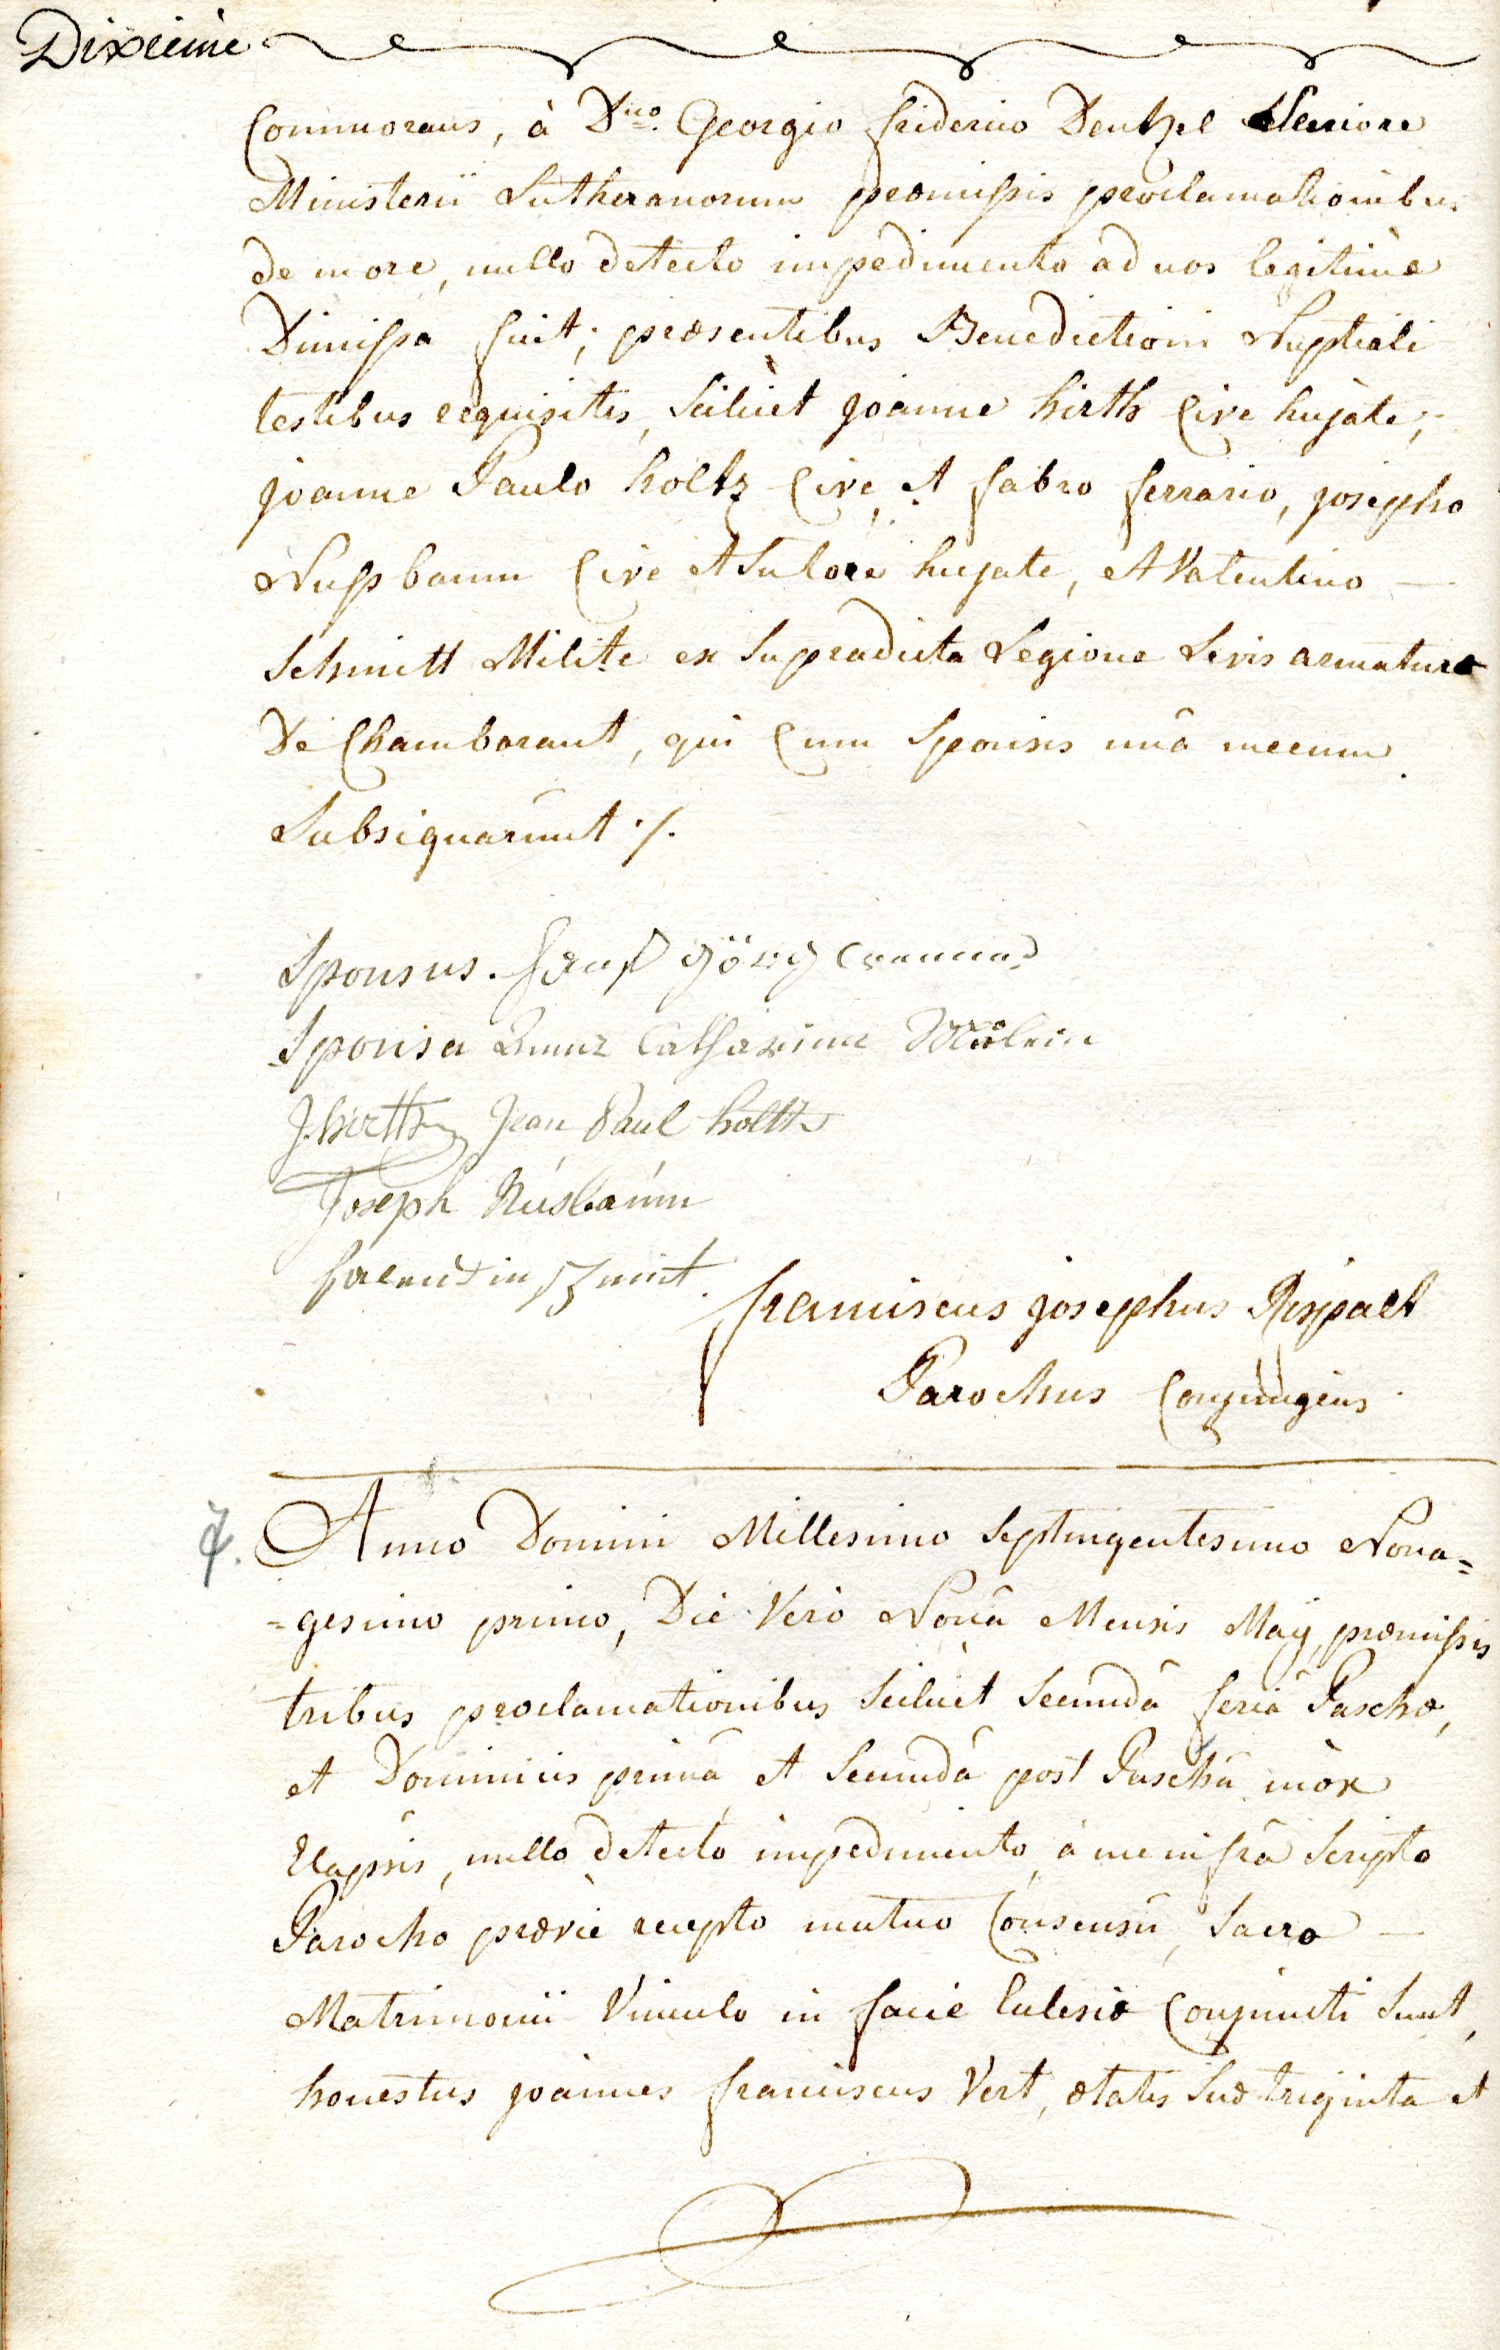 Dixieme
Commorans, à Dno. Georgio friderico Dentzel Seniore
Ministerii Lutheranorum præmissis proclamationibus
de more, nullo detecto impedimento ad nos legitimè
Dimissa fuit; præsentibus Benedictioni Nuptiali
testibus requisitis, Scilicet joanne hirth Cive hujate,
joanne Paulo holtz Cive, et fabro ferrario, josepho
Nussbaum Cive et Sutore hujate, et Valentino —
Schmitt Milite ex Supradicta Legione Levis armaturæ
De Chamborant, qui Cum Sponsis unà mecum
Subsignarunt ./.
Sponsus. görg
Sponsa Anna Catharina
J. hirth Jean Paul holtz
Joseph Nusbaum
falentin Schmit.
franciscus josephus Rispact
Parochus Conjungens
7. Anno Domini Millesimo Septingentesimo Nona=
=gesimo primo, Die Vero Nonâ Mensis Maÿ, præmissis
tribus proclamationibus Scilicet Secundâ feriâ Paschæ,
et Dominicis primâ et Secundâ post Pascha mox
Elapsis, nullo detecto impedimento, à me infrà Scripto
Parocho præviè recepto mutuo Consensu, Sacro —
Matrimonii Vinculo in facie Eclesiæ Conjuncti Sunt,
honestus joannes franciscus Vert, ætatis Suæ triginta et